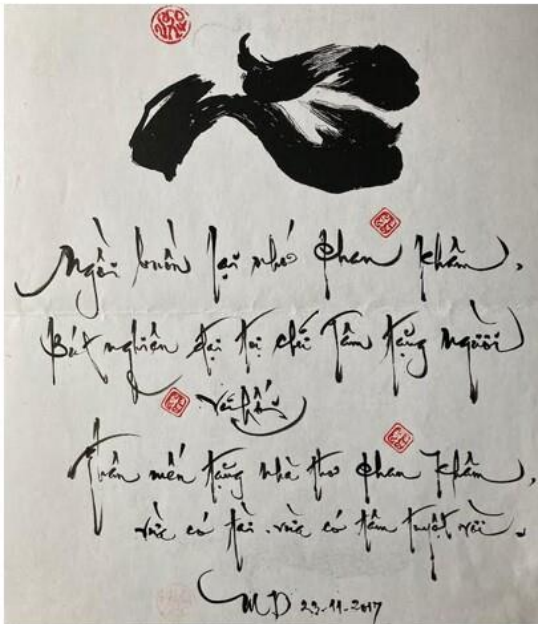 Ngồi buồn lại nhớ Phan Khâm,
Bút nghiên đại tự chữ Tâm tặng người
Thân mến tặng nhà thơ Phan Khâm,
vừa có tài. vừa có tâm tuyệt vời.
MD 23-11-2017